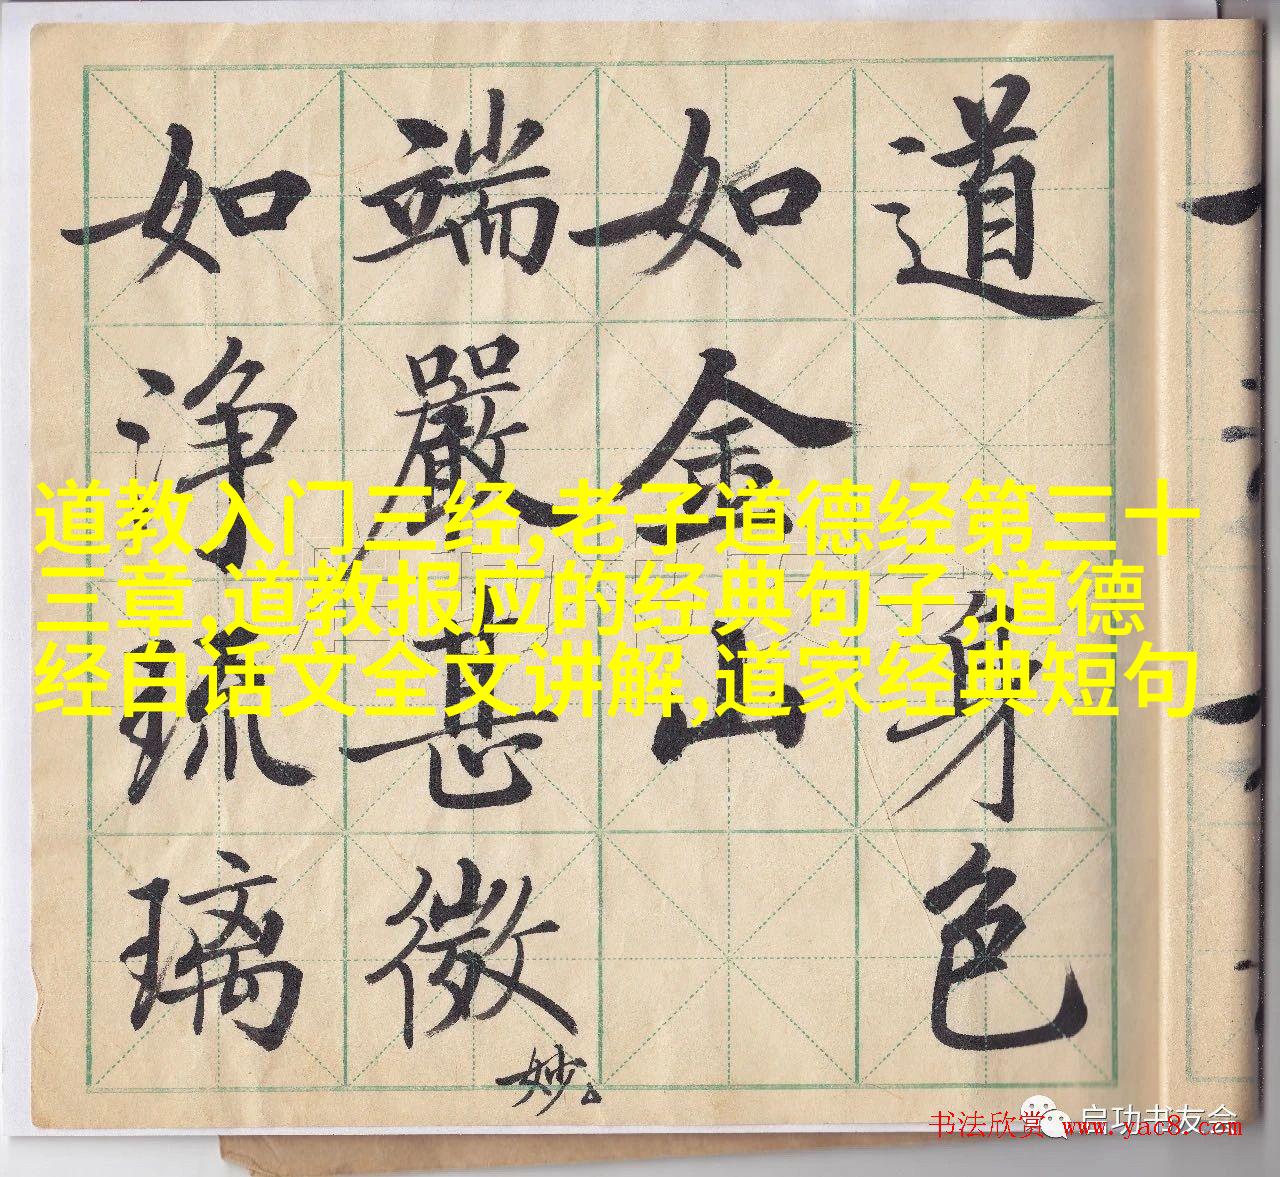 道 身色
如金山
端嚴甚微妙。
如淨琉璃
道教入门三经,老子道德经第三十
三章,道教报应的经典句子,道德
经白话文全文讲解,道家经典短句
启功书友会
书法欣赏 www.yac8.com